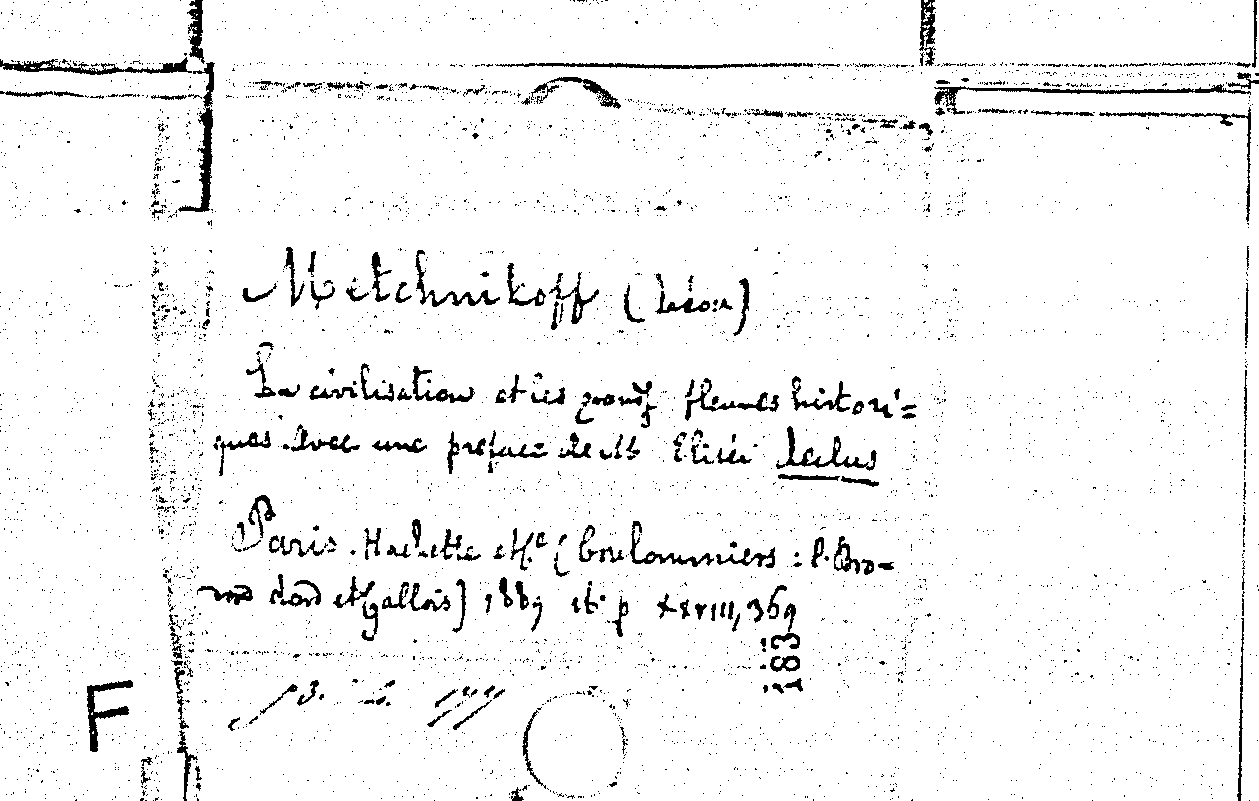 Metchnikoff (Léon)
La civilisation et les grands fleuves histori=
ques. Avec une préface de M. Elisée Reclus
Paris. Hachette et Cie (Coulommiers : P. Bro=
dard et Gallois) 1889 8º p XXVIII, 369
183
F